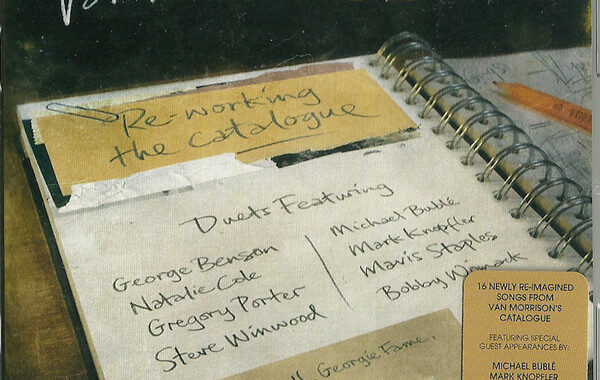 Re-working
the Catalogue
Duets Featuring
George Benson
Natalie Cole
Gregory Porter
Steve Winwood
Michael Bublé
Mark Knopfler
Mavis Staples
Bobby Womack
Georgie Fame,
16 NEWLY RE-IMAGINED
SONGS FROM
VAN MORRISON'S
CATALOGUE
FEATURING SPECIAL
GUEST APPEARANCES BY:
MICHAEL BUBLÉ
MARK KNOPFLER